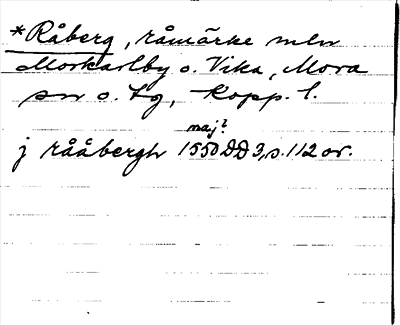 *Råberg, råmärke mln
Morkarlby o. Vika, Mora
sn o. tg, Kopp. l.
maj?
j rååbergh 1550 DD 3, s. 112 or.